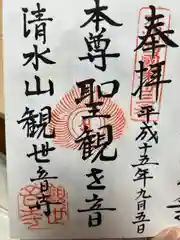 奉拝
平成十五年九月五日
本尊 聖観世音
清水山観世音寺